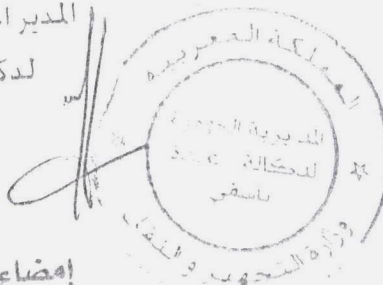 المدير ا
لدك
المملكة المغربية
المديرية الجهوية
لدكالة عبدة
بأسفي
وزارة التجهيز و النقل
إمضاء